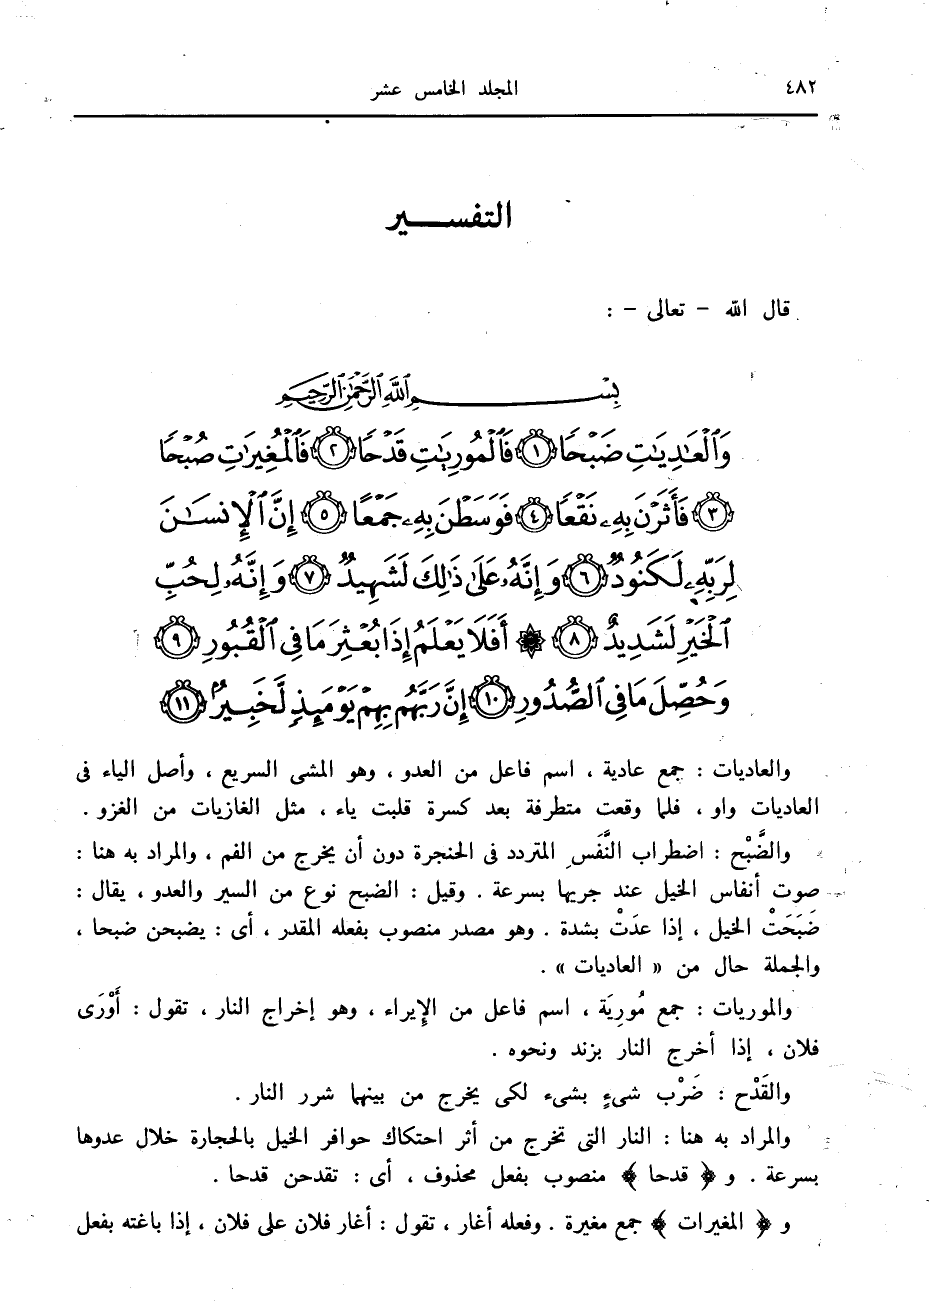 ٤٨٢ المجلد الخامس عشر
التفسير
قال الله - تعالى - :
بِسْمِ ٱللَّهِ ٱلرَّحْمَٰنِ ٱلرَّحِيمِ
وَٱلْعَٰدِيَٰتِ ضَبْحًا ١ فَٱلْمُورِيَٰتِ قَدْحًا ٢ فَٱلْمُغِيرَٰتِ صُبْحًا
٣ فَأَثَرْنَ بِهِۦ نَقْعًا ٤ فَوَسَطْنَ بِهِۦ جَمْعًا ٥ إِنَّ ٱلْإِنسَٰنَ
لِرَبِّهِۦ لَكَنُودٌ ٦ وَإِنَّهُۥ عَلَىٰ ذَٰلِكَ لَشَهِيدٌ ٧ وَإِنَّهُۥ لِحُبِّ
ٱلْخَيْرِ لَشَدِيدٌ ٨ ۞ أَفَلَا يَعْلَمُ إِذَا بُعْثِرَ مَا فِى ٱلْقُبُورِ ٩
وَحُصِّلَ مَا فِى ٱلصُّدُورِ ١٠ إِنَّ رَبَّهُم بِهِمْ يَوْمَئِذٍ لَّخَبِيرٌۢ ١١
والعاديات : جمع عادية ، اسم فاعل من العدو ، وهو المشى السريع ، وأصل الياء فى
العاديات واو ، فلما وقعت متطرفة بعد كسرة قلبت ياء ، مثل الغازيات من الغزو .
والضَّبْح : اضطراب النَّفَسِ المتردد فى الحنجرة دون أن يخرج من الفم ، والمراد به هنا :
صوت أنفاس الخيل عند جريها بسرعة . وقيل : الضبح نوع من السير والعدو ، يقال :
ضَبَحَتْ الخيل ، إذا عدَتْ بشدة . وهو مصدر منصوب بفعله المقدر ، أى : يضبحن ضبحا ،
والجملة حال من « العاديات » .
والموريات : جمع مُورِيَة ، اسم فاعل من الإِيراء ، وهو إخراج النار ، تقول : أَوْرَى
فلان ، إذا أخرج النار بزند ونحوه .
والقَدْح : ضَرْب شىءٍ بشىء لكى يخرج من بينهما شرر النار .
والمراد به هنا : النار التى تخرج من أثر احتكاك حوافر الخيل بالحجارة خلال عدوها
بسرعة . و ﴿ قدحا ﴾ منصوب بفعل محذوف ، أى : تقدحن قدحا .
و ﴿ المغيرات ﴾ جمع مغيرة . وفعله أغار ، تقول : أغار فلان على فلان ، إذا باغته بفعل